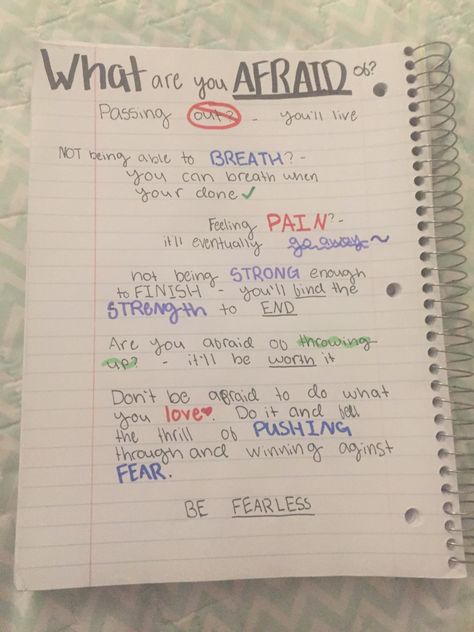 What are you AFRAID of?
Passing out? - you'll live
NOT being able to BREATH? -
you can breath when
your done ✓
Feeling PAIN? -
it'll eventually go away~
not being STRONG enough
to FINISH - you'll find the
STRENGTH to END
Are you afraid of throwing
up? - it'll be worth it
Don't be afraid to do what
you love♥. Do it and fell
the thrill of PUSHING
through and winning aginst
FEAR.
BE FEARLESS